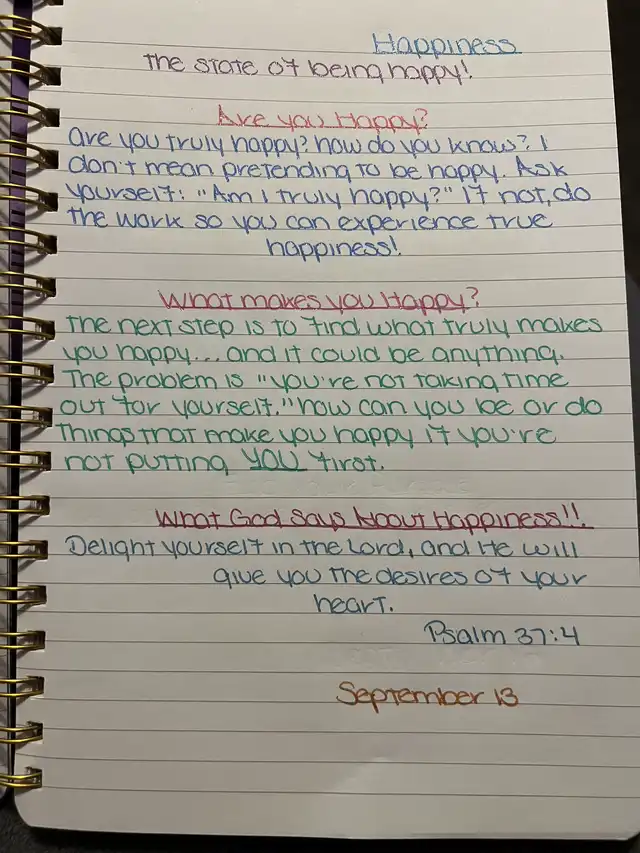 Happiness
The state of being happy!
Are you Happy?
are you truly happy? how do you know? I
don't mean pretending to be happy. Ask
yourself: "Am I truly happy?" If not, do
the work so you can experience true
happiness!
What makes you Happy?
The next step is to find what truly makes
you happy... and it could be anything.
The problem is "you're not taking time
out for yourself." how can you be or do
things that make you happy if you're
not putting YOU first.
What God Says About Happiness!!
Delight yourself in the Lord, and He will
give you the desires of your
heart.
Psalm 37:4
September 13